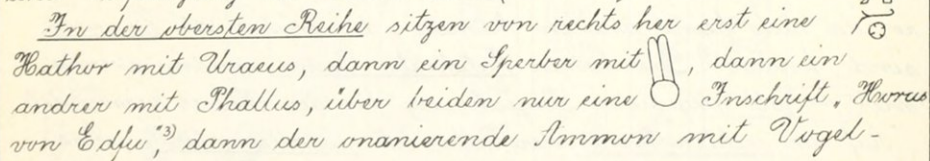 In der obersten Reihe sitzen von rechts her erst eine
Hathor mit Uraeus, dann ein Sperber mit , dann ein
andrer mit Phallus, über beiden nur eine Inschrift „Horus
von Edfu“,³) dann der onanierende Ammon mit Vogel-